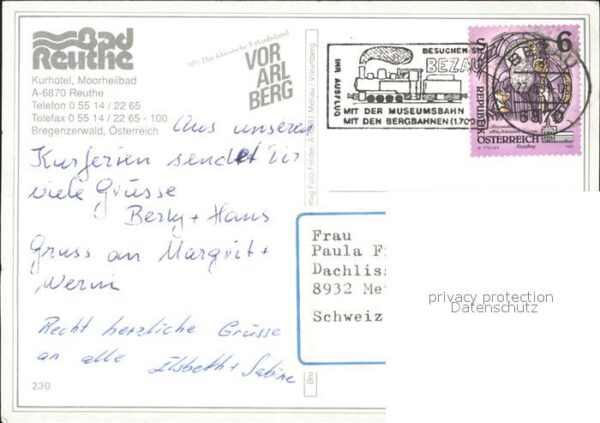 Bad
Reuthe
Kurhotel, Moorheilbad
A-6870 Reuthe
Telefon 0 55 14 / 22 65
Telefax 0 55 14 / 22 65 - 100
Bregenzerwald, Österreich
Das klassische Urlaubsland
VOR
ARL
BERG
IHR AUSFLUG
BESUCHEN SIE
BEZAU
MIT DER MUSEUMSBAHN
MIT DEN BERGBAHNEN (1709
6
REPUBLIK
ÖSTERREICH
Aus unseren
Kurferien sendet Dir
viele Grüsse
Berty + Hans
Gruss an Margrit +
Werni
Recht herzliche Grüsse
an alle Elsbeth + Sabine
Frau
Paula F
Dachliss
8932 Me
Schweiz
privacy protection
Datenschutz
230